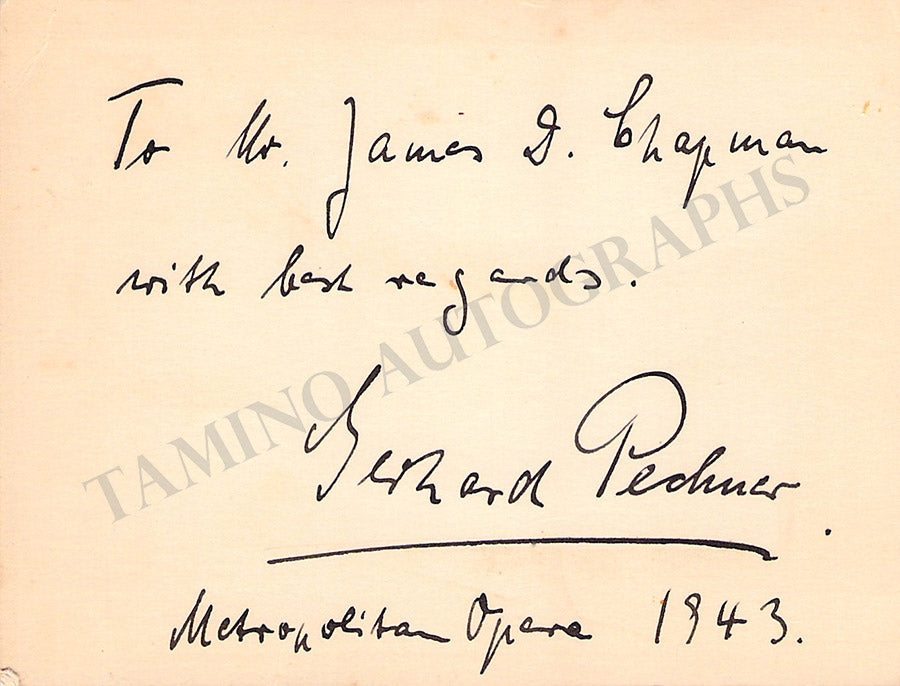 To Mr. James D. Chapman
with best regards.
TAMINO AUTOGRAPHS
Gerhard Pechner
Metropolitan Opera 1943.